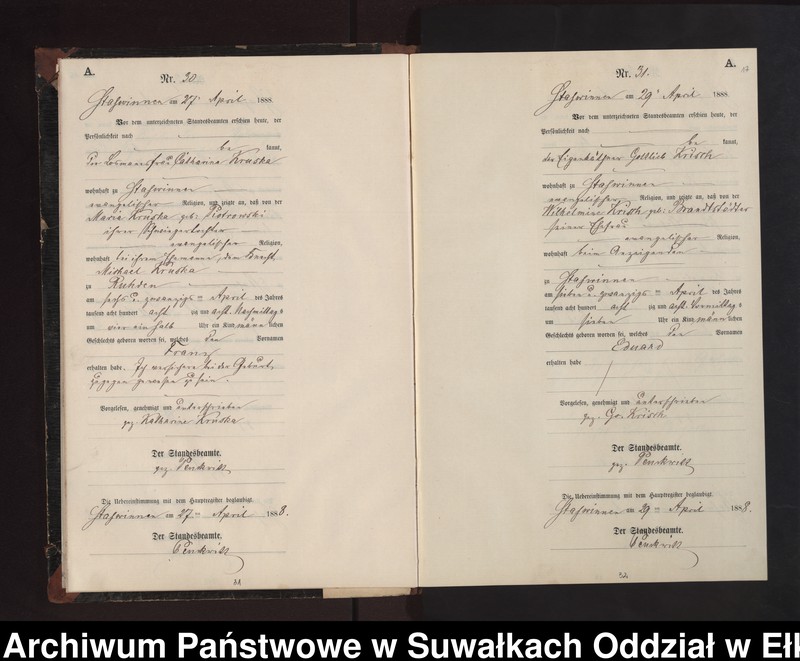 A.
Nr. 30.
am 27 April 1888.
Vor dem unterzeichneten Standesbeamten erschien heute, der
Persönlichkeit nach
be kannt,
Catharina Kruska
wohnhaft zu
evangelischer Religion, und zeigte an, daß von der
Maria Kruska geb: Piotrowski
ihrer Schwiegertochter
evangelischer Religion,
wohnhaft bei ihrem Ehemann, dem Knecht
Michael Kruska
zu
am sechs u zwanzigs ten April des Jahres
tausend acht hundert acht zig und acht Nachmittags
um vier ein halb Uhr ein Kind männ lichen
Geschlechts geboren worden sei, welches den Vornamen
Franz
erhalten habe. Ich versichere bei der Geburt
zugegen gewesen zu sein.
Vorgelesen, genehmigt und unterschrieben
gez. Katharine Kruska
Der Standesbeamte.
gez.
Die Uebereinstimmung mit dem Hauptregister beglaubigt.
am 27ten April 1888.
Der Standesbeamte.
A.
Nr. 31.
am 29 April 1888
Vor dem unterzeichneten Standesbeamten erschien heute, der
Persönlichkeit nach
be kannt,
der Eigenkäthner Gottlieb Krisch
wohnhaft zu
evangelischer Religion, und zeigte an, daß von der
Wilhelmine Krisch geb: Brandtstädter
seiner Ehefrau
evangelischer Religion,
wohnhaft beim Anzeigenden
zu
am sieben u zwanzigs ten April des Jahres
tausend acht hundert acht zig und acht Vormittags
um sieben Uhr ein Kind männ lichen
Geschlechts geboren worden sei, welches den Vornamen
Eduard
erhalten habe
Vorgelesen, genehmigt und unterschrieben
gez. Krisch
Der Standesbeamte.
gez.
Die Uebereinstimmung mit dem Hauptregister beglaubigt.
am 29ten April 1888.
Der Standesbeamte.
Archiwum Państwowe w Suwałkach Oddział w Ełk